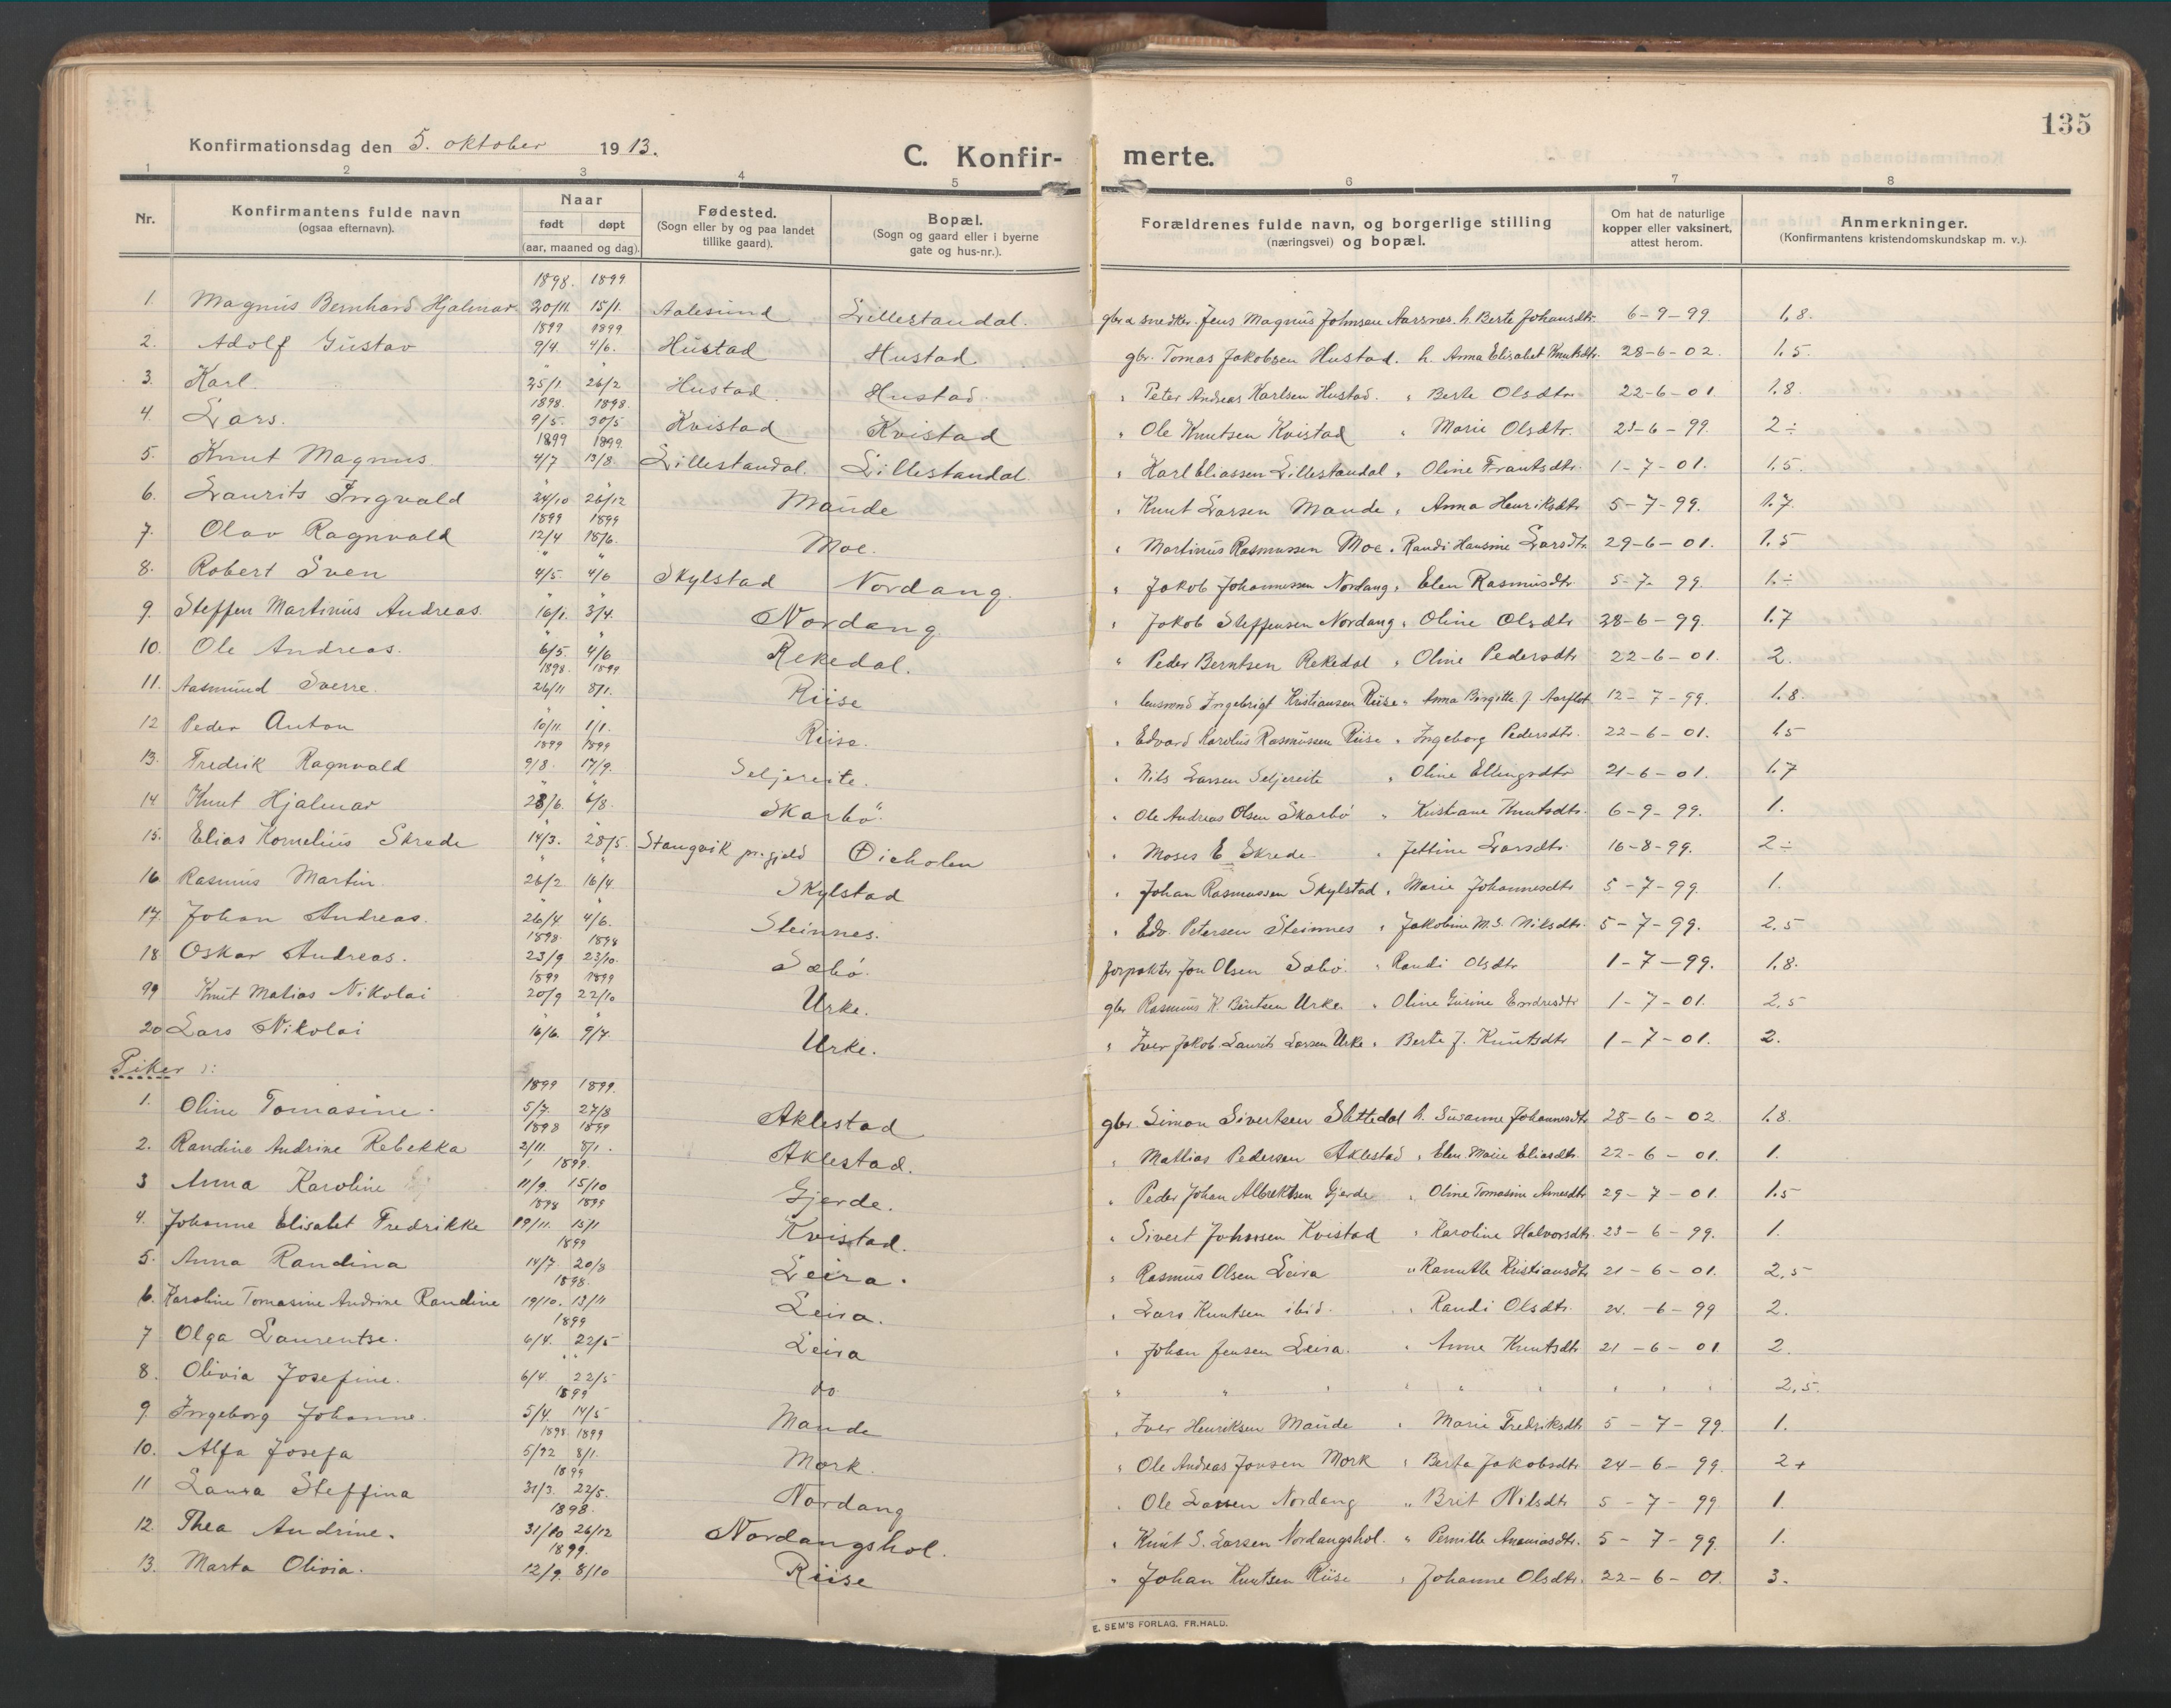 135
Konfirmationsdag den 5. oktober 1913.
C. Konfirmerte.
1 2 3 4 5 6 7 8
Nr. Konfirmantens fulde navn (ogsaa efternavn). Naar født døpt (aar, maaned og dag). Fødested. (Sogn eller by og paa landet tillike gaard). Bopæl. (Sogn og gaard eller i byerne gate og hus-nr.). Forældrenes fulde navn, og borgerlige stilling (næringsvei) og bopæl. Om hat de naturlige kopper eller vaksinert, attest herom. Anmerkninger. (Konfirmantens kristendomskundskap m. v.).
1898. 1899
1. Magnus Bernhard Hjalmar 20/11. 15/1. Aalesund Lillestandal. gbr & snedker. Jens Magnus Johnsen Aarsnes. h. Berte Johansdtr. 6-9-99. 1,8.
1899 1899
2. Adolf Gustav 9/4. 4/6. Hustad Hustad. gbr. Tomas Jakobsen Hustad. h. Anna Elisabet Knutsdtr. 28-6-02. 1.5.
" "
3. Karl. 25/1. 26/2 Hustad. Hustad. " Peter Andreas Karlsen Hustad. " Berte Olsdtr. 22-6-01. 1.8.
1898. 1898.
4. Lars. 9/5. 30/5 Kvistad Kvistad " Ole Knutsen Kvistad " Marie Olsdtr. 23-6-99. 2÷
1899 1899.
5. Knut Magnus. 4/7 13/8. Lillestandal. Lillestandal. " Karl Eliassen Lillestandal " Oline Frantsdtr. 1-7-01. 1.5.
" "
6. Laurits Ingvald 24/10 26/12 Maude " Knut Larsen Maude " Anna Henriksdtr 5-7-99. 1.7.
1899 1899
7. Olav Ragnvald 12/4 18/6. Moe. " Martinus Rasmussen Moe. " Randi Hansine Larsdtr 29-6-01. 1.5
" "
8. Robert Sven 4/5. 4/6 Skylstad Nordang. " Jakob Johannessen Nordang " Elen Rasmusdtr 5-7-99. 1.÷
" "
9. Steffen Martinus Andreas. 16/1. 3/4. Nordang " Jakob Steffensen Nordang " Oline Olsdtr 28-6-99. 1.7
" "
10. Ole Andreas. 6/5. 4/6 Rekedal. " Peder Berntsen Rekedal " Oline Pedersdtr 22-6-01. 2.
1898. 1899
11. Aasmund Sverre. 26/11 8/1. Riise " lensmand Ingebrigt Kristiansen Riise " Anna Birgitte J. Aarflot 12-7-99. 1.8.
" "
12 Peder Anton 10/11. 1/1. Riise. " Edvard Karolus Rasmussen Riise " Ingeborg Pedersdtr. 22-6-01. 1.5
1899 1899
13. Fredrik Ragnvald 9/8. 17/9. Seljereite. " Nils Larsen Seljereite " Oline Ellingsdtr 21-6-01. 1.7
" "
14 Knut Hjalmar 28/6. 6/8. Skarbö. " Ole Andreas Olsen Skarbö " Kristiane Knutsdtr. 6-9-99. 1.
" "
15. Elias Kornelius Skrede 14/3. 28/5. Stangvik pr.gjeld Öieholen " Moses E Skrede " Jettine Larsdtr 16-8-99. 2÷
" "
16 Rasmus Martin. 26/2. 16/4. Skylstad " Johan Rasmussen Skylstad " Marie Johannesdtr 5-7-99. 1.
" "
17. Johan Andreas. 26/4. 4/6. Steinnes. " Edv. Petersen Steinnes " Jakobine M.S. Nilsdtr. 5-7-99. 2.5
1898. 1898
18 Oskar Andreas. 23/9 23/10. Sæbö. forpakter Jon Olsen Sæbö. " Randi Olsdtr 1-7-99. 1.8.
1899 1899
19 Knut Matias Nikolai 20/9 22/10 Urke. gbr Rasmus K. Bentsen Urke " Oline Gurine Endresdtr 1-7-01. 2,5
" "
20 Lars Nikolai 16/6. 9/7. Urke. " Iver Jakob Laurits Larsen Urke " Berte J. Knutsdtr 1-7-01. 2.
Piker ::
1899 1899.
1. Oline Tomasine. 5/7. 27/8 Aklestad gbr. Simon Sivertsen Slettedal h. Susanne Johannesdtr 28-6-02. 1.8.
1898 1899
2. Randine Andrine Rebekka 2/11. 8/1. Aklestad. " Mattias Pedersen Aklestad " Elen Marie Eliasdtr. 22-6-01. 1.
" 1899.
3 Anna Karoline 11/9. 15/10 Gjerde. " Peder Johan Albrektsen Gjerde " Oline Tomasine Arnesdtr 29-7-01. 1.5
1898 1899
4. Johanne Elisabet Fredrikke 19/11. 15/1 Kvistad. " Sivert Johnsen Kvistad " Karoline Halvorsdtr. 23-6-99. 1.
1899
5. Anna Randina 14/7. 20/8 Leira. " Rasmus Olsen Leira " Ranutte Kristiansdtr 21-6-01. 2,5
1898.
6. Karoline Tomasine Andrine Randine 19/10. 13/11 Leira. " Lars Knutsen ibid. " Randi Olsdtr. 24.-6-99 2.
1899
7 Olga Laurentse. 6/4. 22/5 Leira " Johan Jensen Leira. " Anne Knutsdtr 21-6-01. 2.
" "
8. Olivia Josefine. 6/4. 22/5 do. " " " " " " " " " 2,5.
1899
9. Ingeborg Johanne. 5/4. 14/5 Maude " Iver Henriksen Maude " Marie Fredriksdtr 5-7-99. 1.
1898. 1899
10. Alfa Josefa 5/12 8/1. Mork. " Ole Andreas Jonsen Mork " Berta Jakobsdtr. 24-6-99. 2+
1899
11 Laura Steffina 31/3. 22/5. Nordang " Ole Larsen Nordang " Brit Nilsdtr 5-7-99. 1.
1898.
12. Thea Andrine. 31/10 26/12 Nordangshol. " Knut S. Larsen Nordangshol. " Pernille Ananiasdtr. 5-7-99. 1.
1899.
13. Marta Olivia. 12/9. 8/10 Riise " Johan Knutsen Riise " Johanne Olsdtr. 22-6-01. 3.
E. SEM'S FORLAG, FR.HALD.